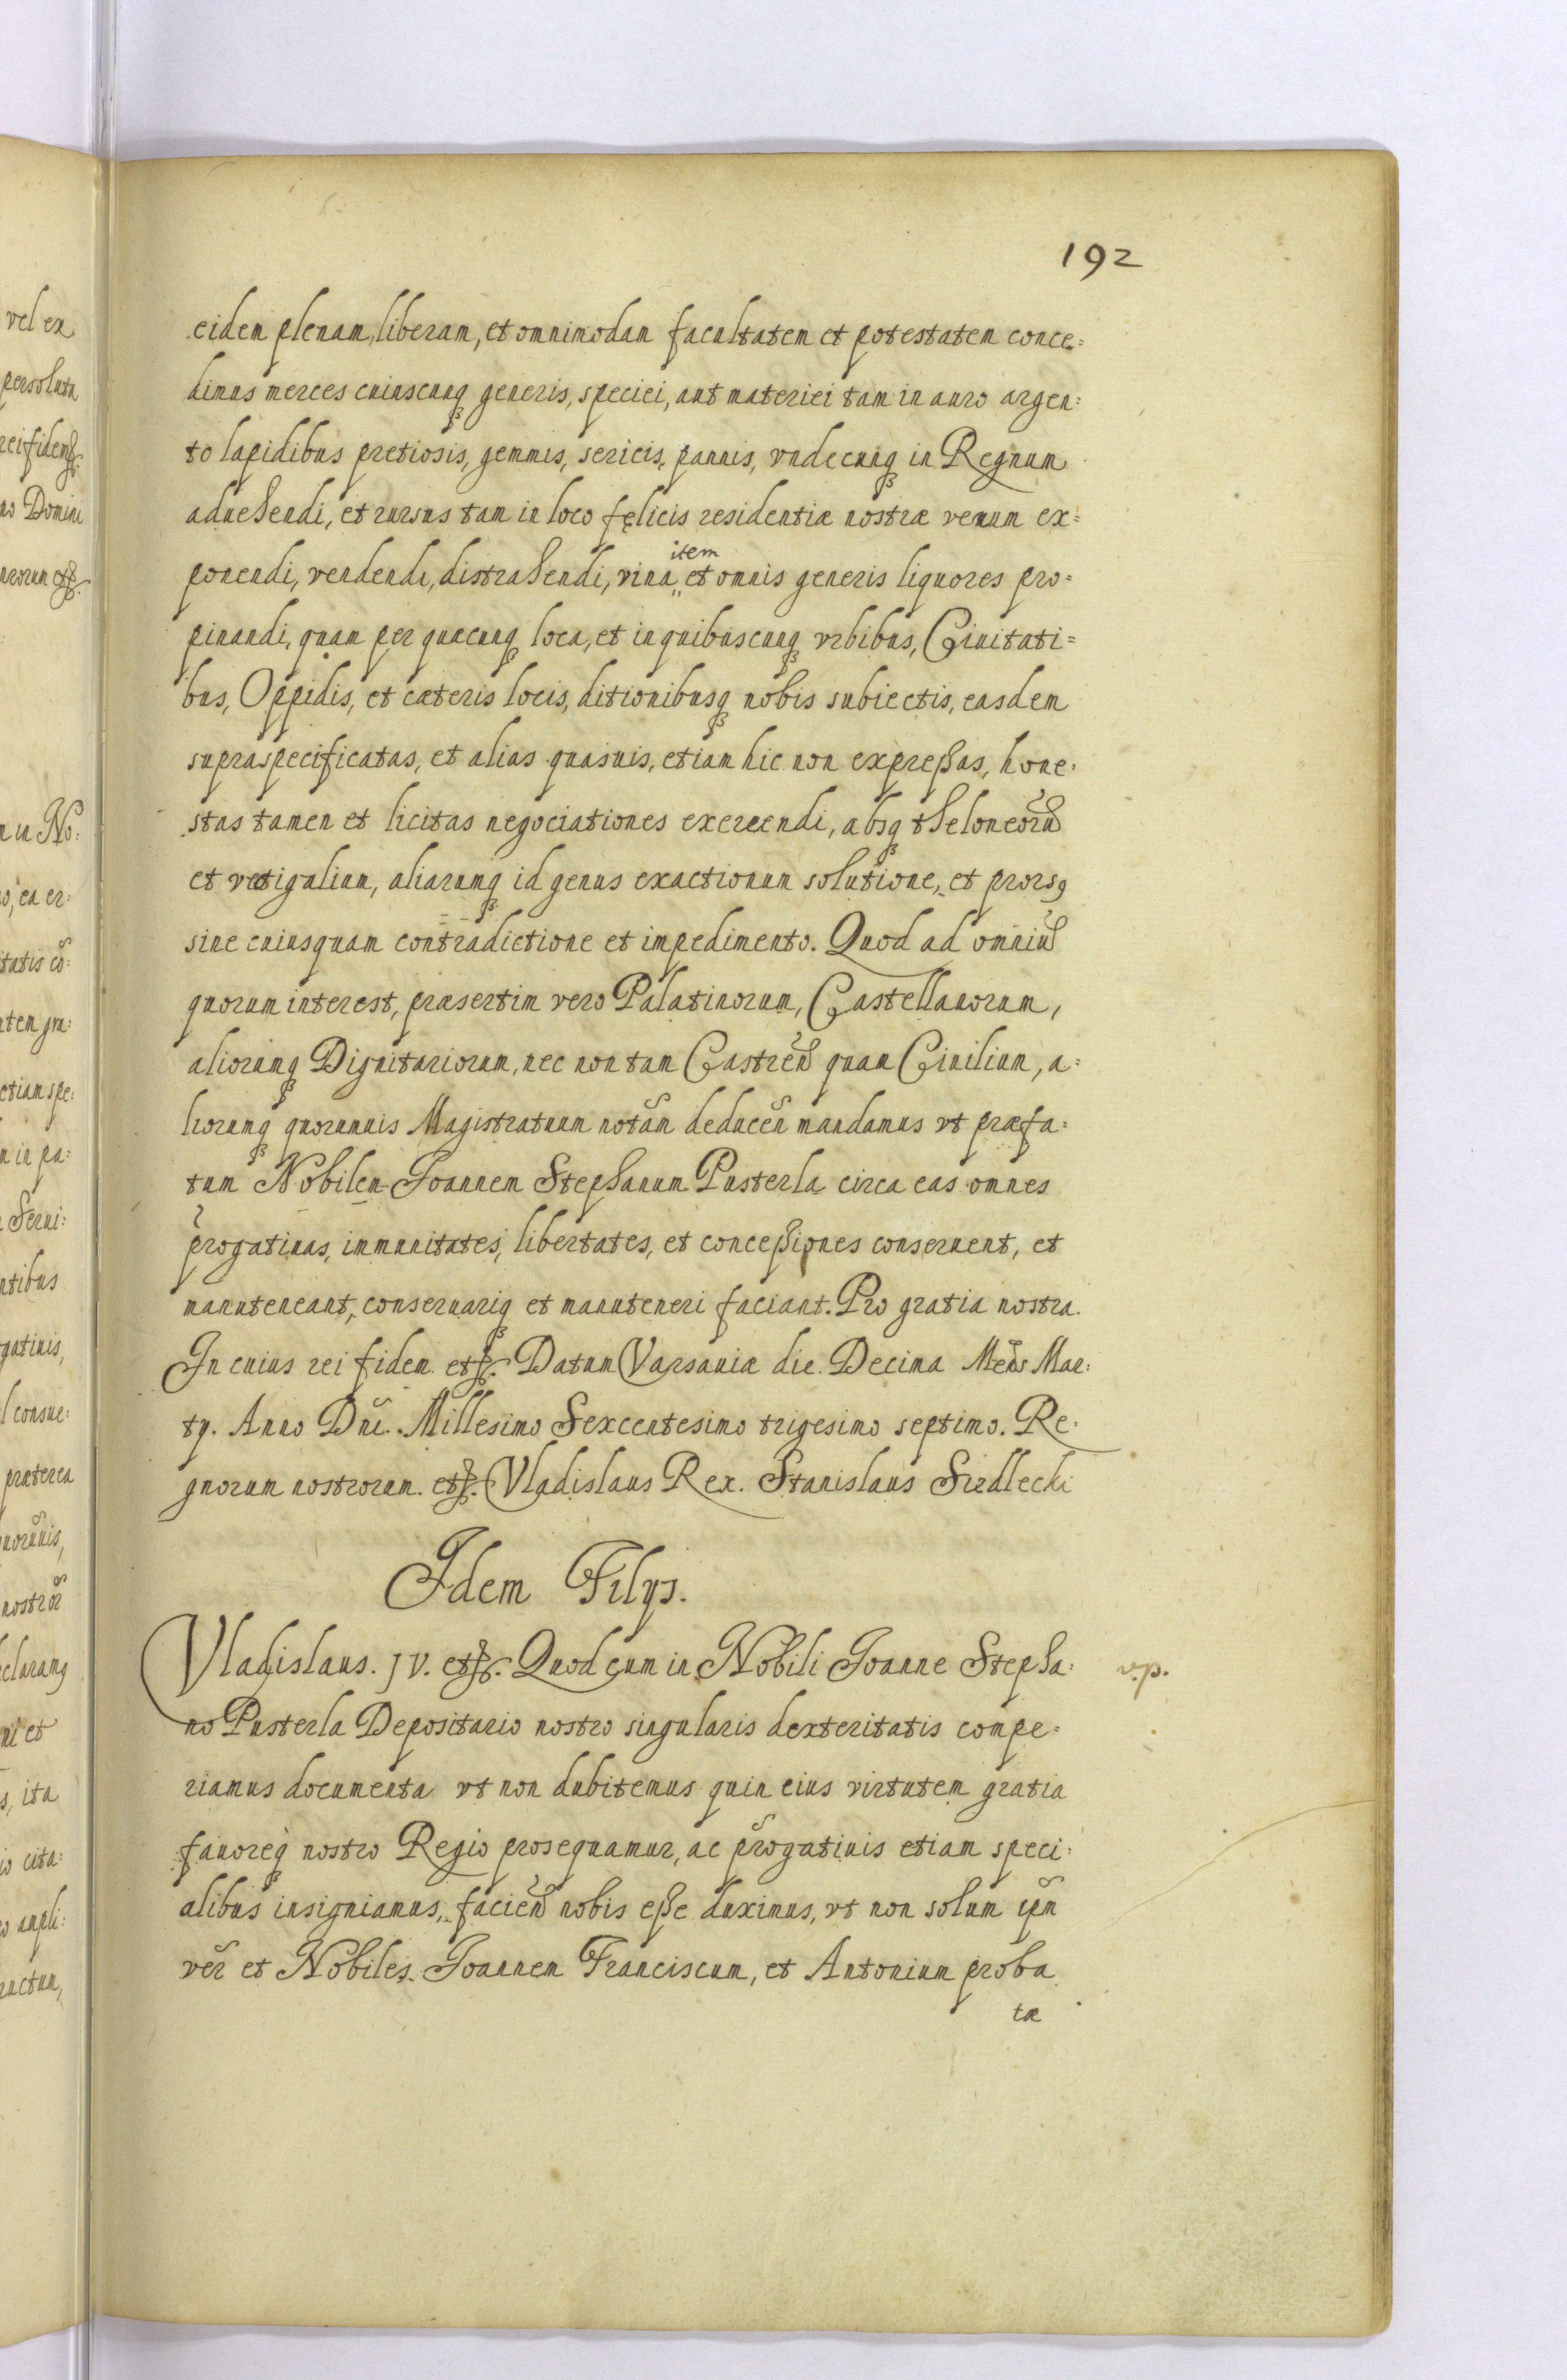 192
eidem plenam, liberam, et omnimodam facultatem et potestatem conce=
dimus merces cuiuscunq generis, speciei, aut materiei tam in auro argen=
to lapidibus pretiosis, gemmis, sericis, pannis, vndecunq in Regnum
aduehendi, et rursus tam in loco fęlicis residentiæ nostræ venum ex=
ponendi, vendendi, distrahendi, vina item et omnis generis liquores pro=
pinandi, quam per quæcunq loca, et in quibuscunq vrbibus, Ciuitati=
bus, Oppidis, et cæteris locis, ditionibusq nobis subiectis, easdem
supraspecificatas, et alias quasuis, etiam hic non expreßas, hone=
stas tamen et licitas negociationes exercendi, absq theloneorũ
et vectigalium, aliarumq id genus exactionum solutione, et prorsꝰ
sine cuiusquam contradictione et impedimento. Quod ad omniũ
quorum interest, præsertim vero Palatinorum, Castellanorum,
aliorumq Dignitariorum, nec non tam Castren̄ quam Ciuilium, a=
liorumq quorumuis Magistratuum notãm deducen̄ mandamus vt præfa=
tum Nobilem Joannem Stephanum Pusterla circa eas omnes
progatiuas, immunitates, libertates, et conceßiones conseruent, et
manuteneant, conseruariq et manuteneri faciant. Pro gratia nostra.
In cuius rei fidem. etc. Datum Varsauiæ die. Decima Men̄s Mar=
tij. Anno Dñi. Millesimo Sexcentesimo trigesimo septimo. Re=
gnorum nostrorum. etc. Vladislaus Rex. Stanislaus Siedlecki
Idem Filijs.
Vladislaus. IV. etc. Quod cum in Nobili Joanne Stepha= v.p.
no Pusterla Depositario nostro singularis dexteritatis compe=
riamus documenta vt non dubitemus quin eius virtutem gratia
fauoreq nostro Regio prosequamur, ac p̃rogatiuis etiam speci=
alibus insigniamus, facien̄ nobis eße duximus, vt non solum ip̃m
ver̃ et Nobiles Joannem Franciscum, et Antonium proba
tæ